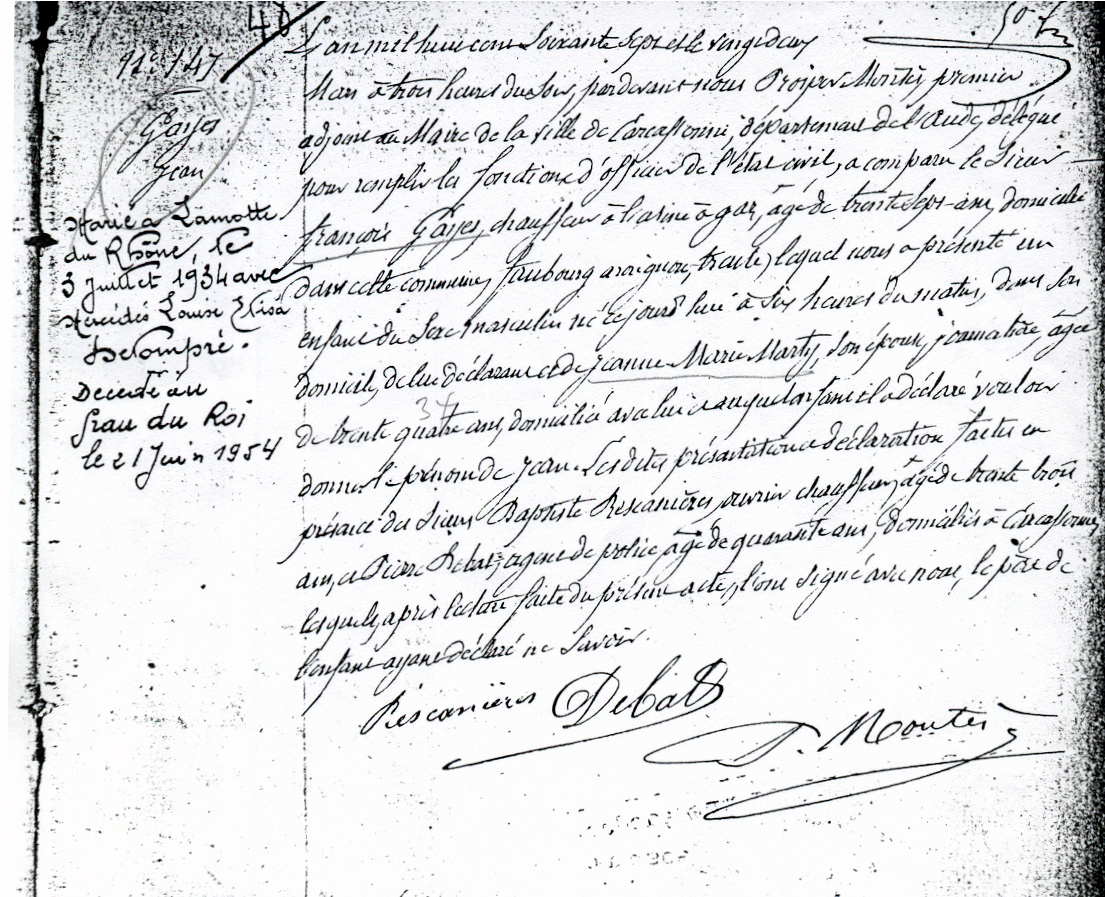 48
N° 147
Gayes
Jean
Marié à Lamotte
du Rhône, le
3 Juillet 1934 avec
Mercédès Louise Elisa
Delompré.
Décédé au
Grau du Roi
le 21 Juin 1954
L'an mil huit cent Soixante Sept et le vingt deux
Mars à trois heures du soir, pardevant nous Prosper Montès, premier
adjoint au Maire de la ville de Carcassonne, département de l'Aude, délégué
pour remplir les fonctions d'officier de l'état civil, a comparu le Sieur
françois Gayes, chauffeur à l'usine à gaz, âgé de trente Sept ans, domicilié
dans cette commune, faubourg, lequel nous a présenté un
enfant du Sexe masculin né ce jourd'hui à Six heures du matin, dans son
domicile, de lui déclarant et de Jeanne Marie Marty, son épouse, journalière, âgée
34
de trente quatre ans, domiciliée avec lui et auquel enfant il a déclaré vouloir
donner le prénom de Jean. Lesdites présentation et déclaration faites en
présence des Sieurs Baptiste Rescanières, ouvrier chauffeur, âgé de trente trois
ans, et Pierre Debat, agent de police, âgé de quarante ans, domiciliés à Carcassonne,
lesquels, après lecture faite du présent acte, l'ont signé avec nous, le père de
l'enfant ayant déclaré ne Savoir.
Rescanières Debat
P. Montès